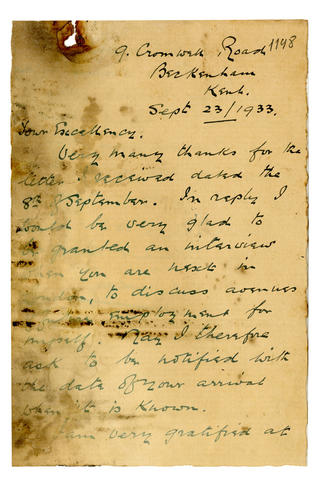 9. Cromwell Road 1198
Beckenham
Kent.
Sept 23/1933.
Your Excellency.
Very many thanks for the
letter received dated the
8th September. In reply I
would be very glad to
be granted an interview
when you are next in
London, to discuss avenues
employment for
myself. May I therefore
ask to be notified with
the date of your arrival
when it is known.
I am very gratified at